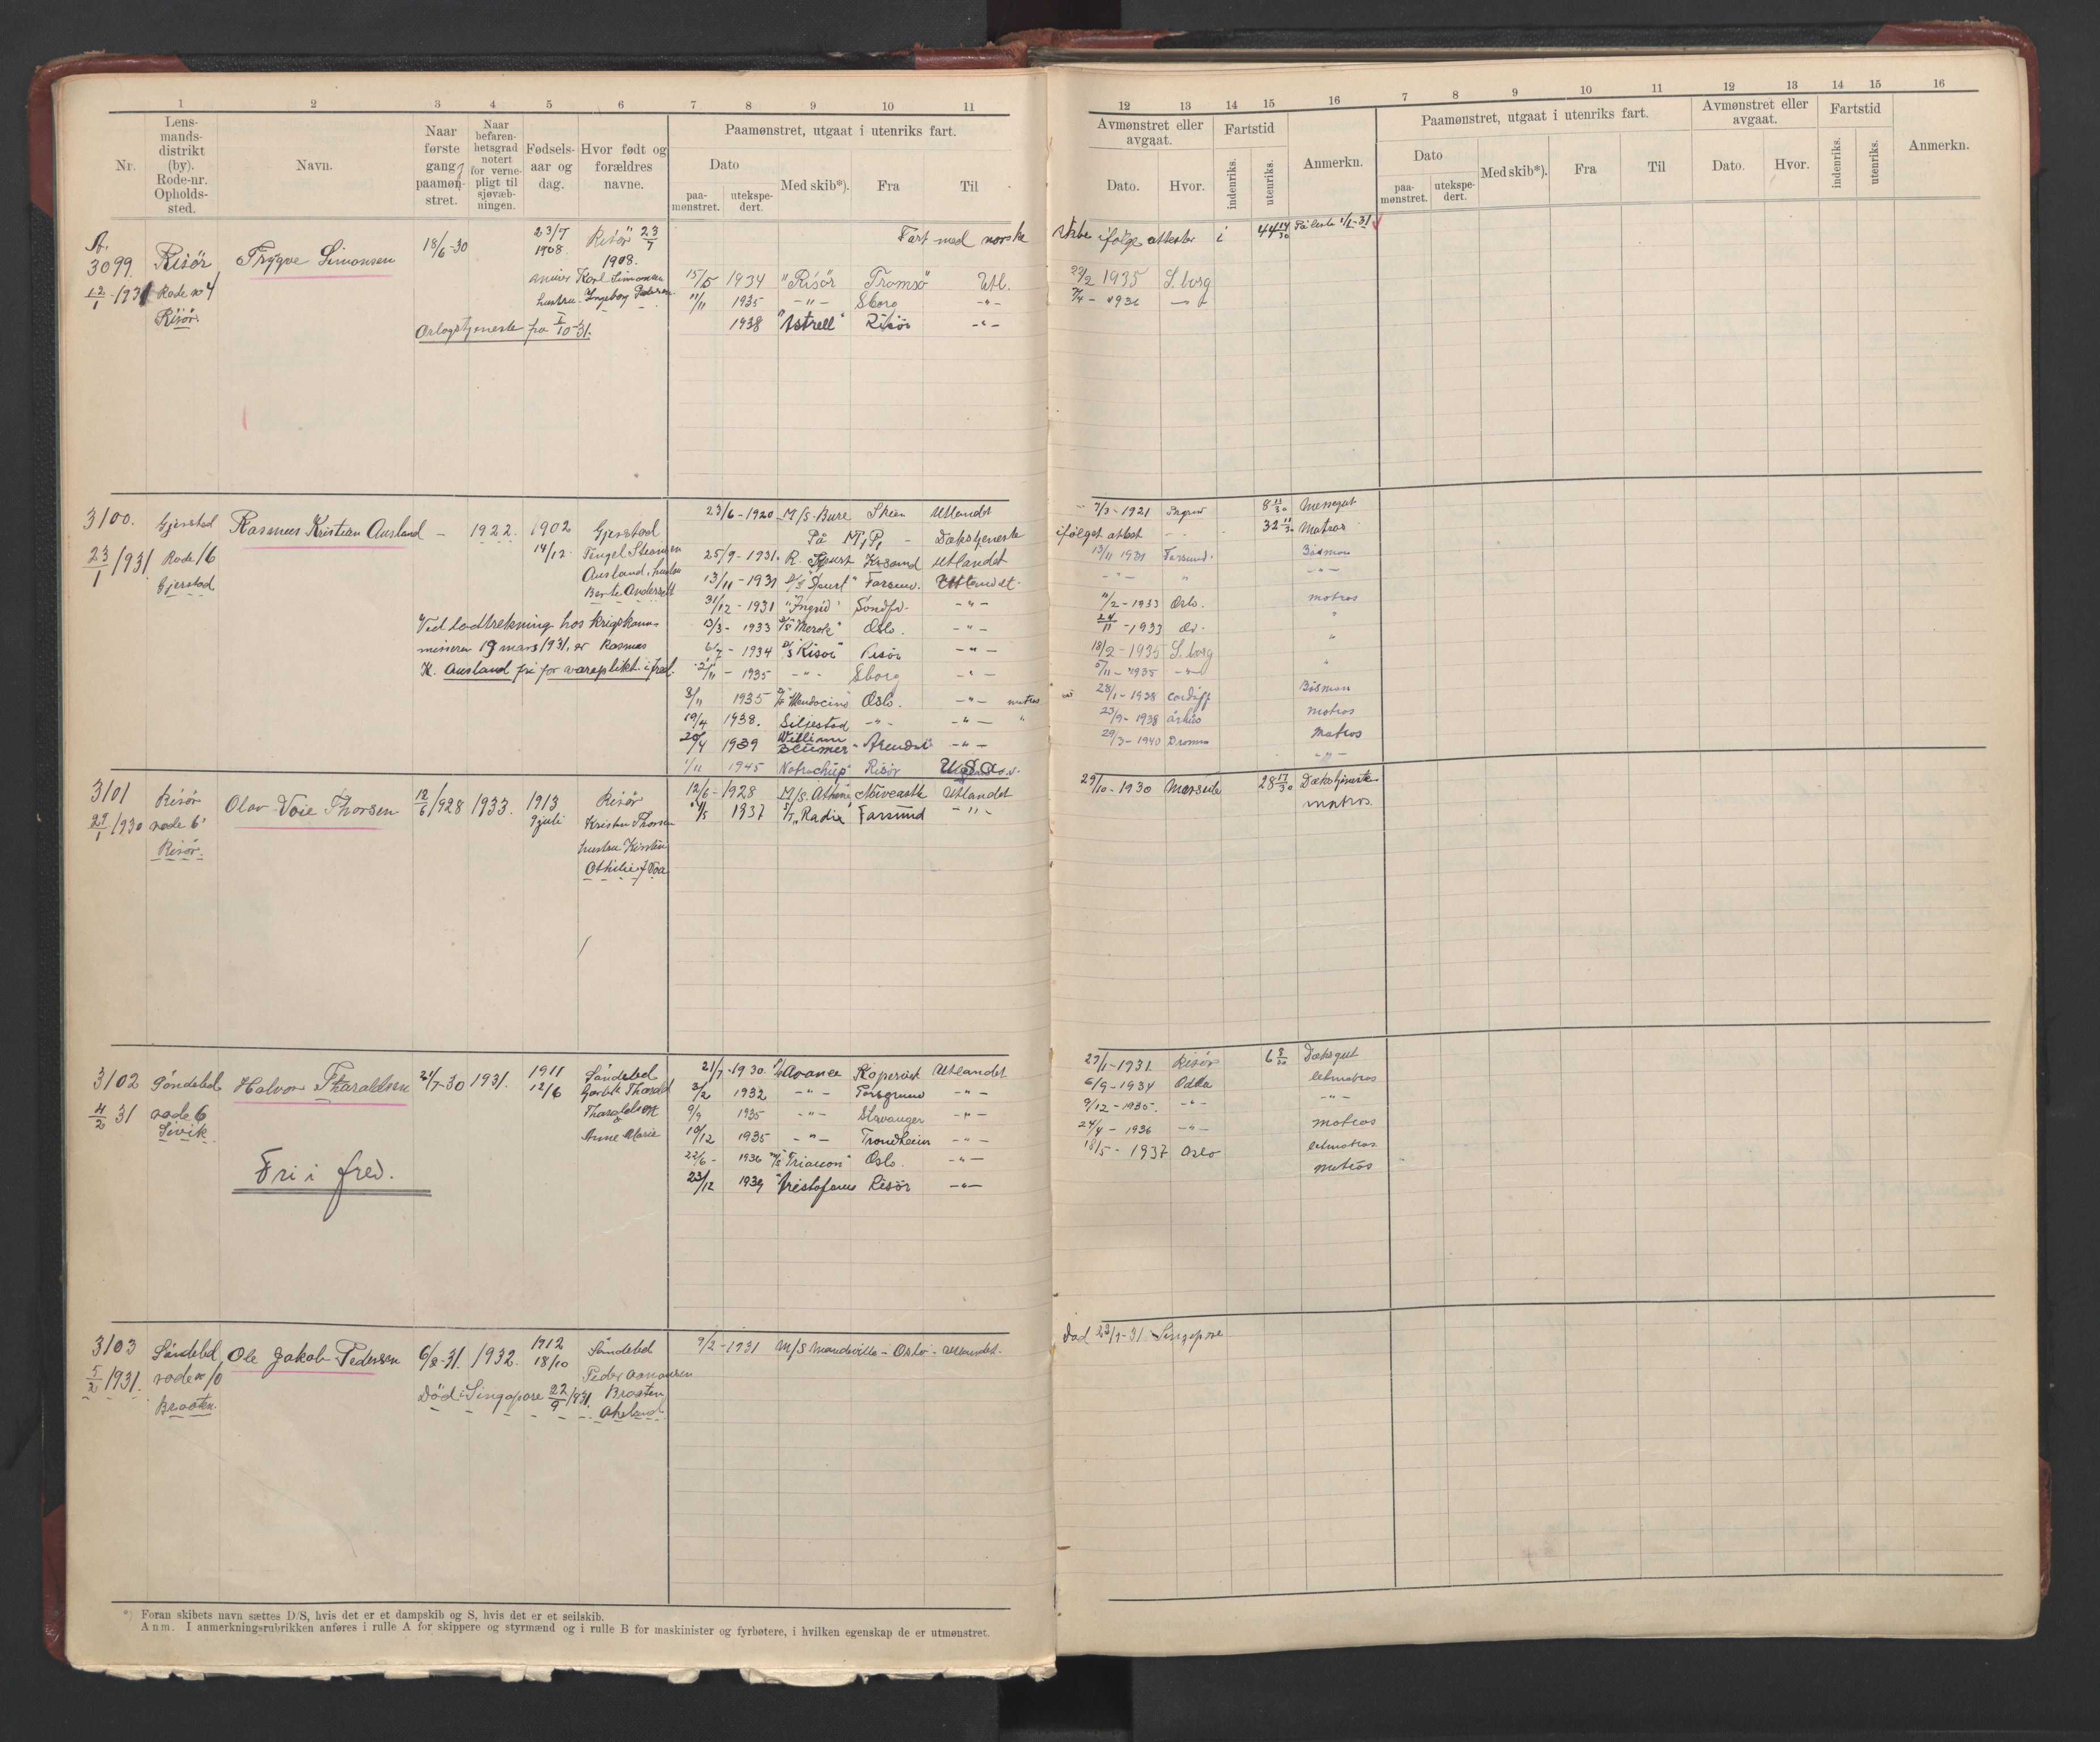 1 2 3 4 5 6 7 8 9 10 11
Nr.
Lens-
mands-
distrikt
(by).
Rode-nr.
Opholds-
sted.
Navn.
Naar
første
gang
paamøn-
stret.
Naar
befaren-
hetsgrad
notert
for verne-
pligt til
sjøvæb-
ningen.
Fødsels-
aar og
dag.
Hvor født og
forældres
navne.
Paamønstret, utgaat i utenriks fart.
Dato
paa-
mønstret.
utekspe-
dert.
Med skib*).
Fra
Til
12 13 14 15 16 7 8 9 10 11 12 13 14 15 16
Avmønstret eller
avgaat.
Dato.
Hvor.
Fartstid
indenriks.
utenriks.
Anmerkn.
Paamønstret, utgaat i utenriks fart.
Dato
paa-
mønstret.
utekspe-
dert.
Med skib*).
Fra
Til
Avmønstret eller
avgaat.
Dato.
Hvor.
Fartstid
indenriks.
utenriks.
Anmerkn.
3099. Risör Trygve Simonsen 18/6-30 23/7 1908 Risör 23/7 1908.
12/1-1931 Rode no 4
Risör.
Karl Simonsen
hustru Ingeborg
Fart med norske skibe ifølge attester i 44 14/30
15/5 1934 "Risör" Tromsö Utl. 22/2 1935 S.borg
11/11 1935 -"- Sborg -"- 7/4 - 1936 -"-
1938 Risör -"-
fra 1/10-31.
3100. Gjerstad Rasmus Kristian Ausland - 1922. 1902 14/12 Gjerstad
23/1 1931 Rode 16
Gjerstad
Ausland, hustru
Berte
23/6-1920 M/S. Bure Skien Utlandet 7/3-1921 8 11/30
På - Dækstjeneste ifølget attest 32 11/30 Matros
25/9-1931. Utlandet 13/11 1931 Farsund. Båsman
13/11-1931 Farsund. Utlandet. -"-
31/12-1931 "Ingrid" -"- 11/2-1933 Oslo. matros
13/3- 1933 Oslo. -"- 24/11-1933
6/7- 1934 D/S "Risör" Risör -"- 18/2-1935 S.borg
1935 -"- Sborg -"- 5/11-1935 -"-
8/11 1935 "Mendocino" Oslo. -"- matros 28/1-1938 Cardiff Båsman
19/4 1938. Siljestad -"- -"- 23/9-1938 århus matros
20/4 1939 William Blumer Arendal -"- 29/3-1940 matros
1/11 1945 Risör USA -"-
Ved lodtrekning hos krigskom-
misseren 19 mars 1931, er Rasmus
K. Ausland fri for værneplikt i fred.
3101 Risör Olav Voie Thorsen 12/6 1928 1933. 1913 9 juli Risör
29/1 1930 rode 6
Risör.
Kristen Thorsen
hustru Kirsten
Othilie f. Voie
12/6-1928 M/S. Athene Utlandet 29/10-1930 28 17/30 Dækstjeneste
1937 Farsund -"- matros.
3102 Söndeled Halvor Tharaldsen 21/7-30 1931. 1911 12/6 Söndeled
4/2 31 rode 6
Sivik
Tharaldsen
Anne Marie
Fri i fred.
21/7-1930. Avance Utlandet 27/1-1931. Risör 6 8/30 Dæksgut
3/2 1932 -"- Porsgrund -"- 6/9-1934 Odda letmatros
9/9 1935 -"- Stavanger -"- 9/12-1935. -"- -"-
10/12 1935 -"- Trondheim -"- 24/4-1936 -"- matros
22/6- 1936 "Triacon" Oslo. -"- 18/5-1937 Oslo letmatros
23/12 1939 Risör -"- matros
3103 Söndeled Ole Jakob Pedersen 6/2-31. 1932. 1912 18/10 Söndeled
5/2 1931. rode no 10
Braaten
Peder
Braaten
Död i Singapore 22/9 1931.
9/2-1931 M/S Mandeville - Oslo - Utlandet. Död Singapore
*) Foran skibets navn sættes D/S, hvis det er et dampskib og S, hvis det er et seilskib.
Anm. I anmerkningsrubrikken anføres i rulle A for skippere og styrmænd og i rulle B for maskinister og fyrbøtere, i hvilken egenskap de er utmønstret.